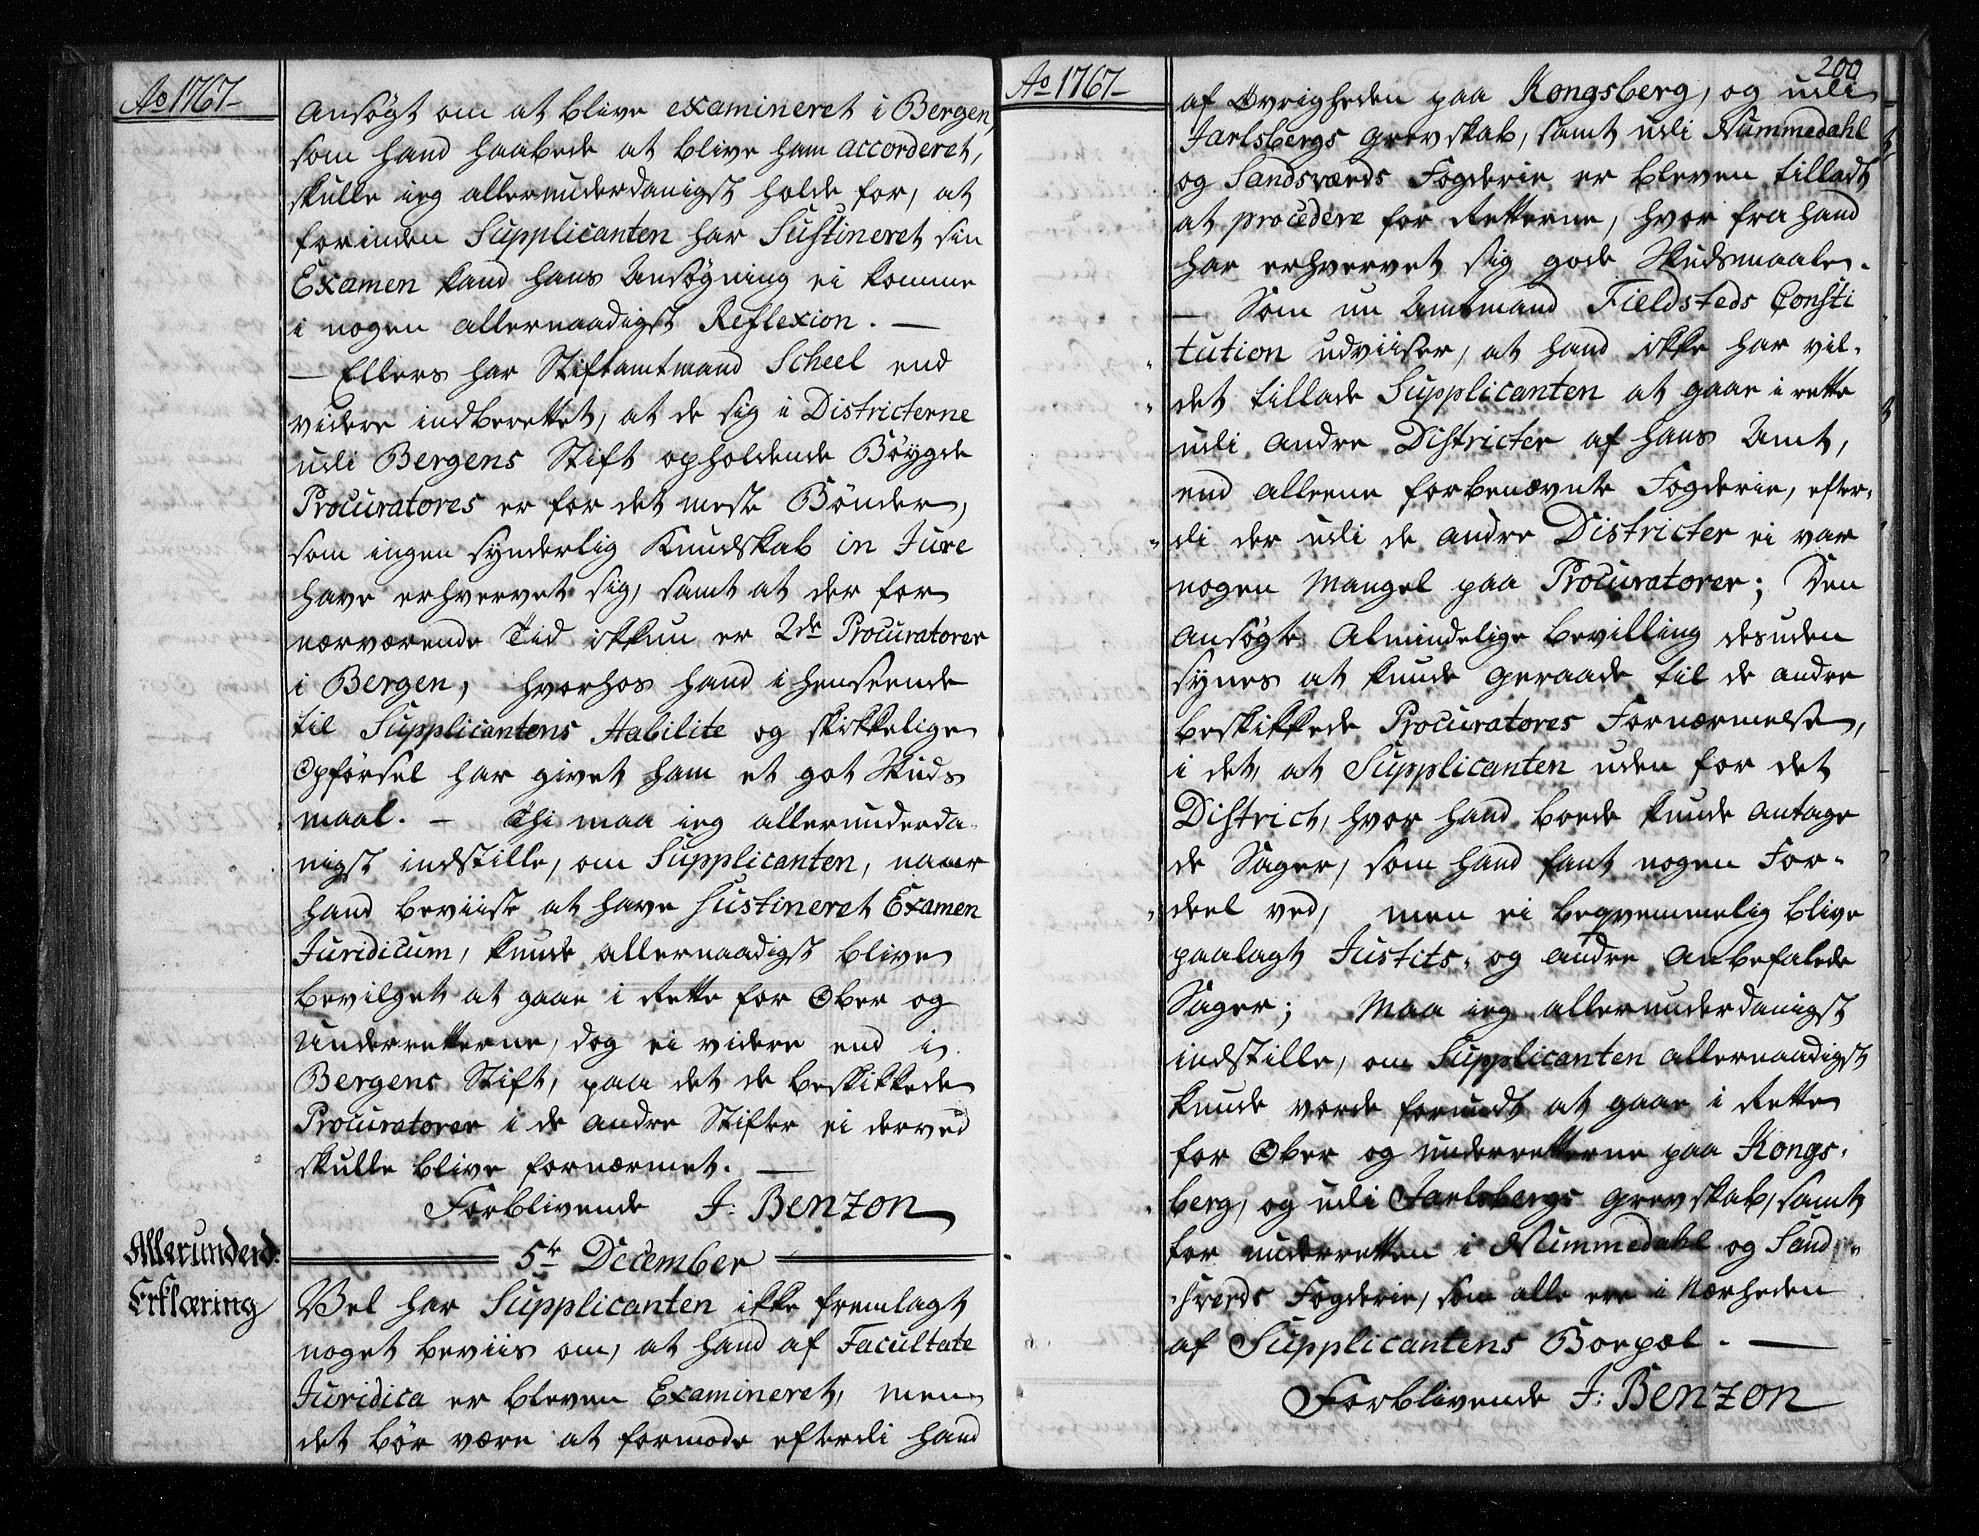 Ao 1767
Ansøgt om at blive examineret i Bergen,
som hand haabede at blive ham accorderet,
skulle ieg allerunderdanigst holde for, at
forinden Supplicanten har Sustineret sin
Examen kand hans Ansøgning ei komme
i nogen allernaadigst Reflexion. —
— Ellers har Stiftamtmand Scheel end
videre indberettet, at de sig i Districterne
udi Bergens Stift opholdende Bøygde
Procuratores er for det meste Bønder,
som ingen synderlig Kundskab in Jure
have erhvervet sig, samt at der for
nærværende Tid ikkun er 2de Procuratorer
i Bergen, hvorhos hand i henseende
til Supplicantens Habilite og skikkelige
Opførsel har givet ham et got Skuds
maal. — Thi maa ieg allerunderda-
nigst indstille, om Supplicanten, naar
hand beviise at have Sustineret Examen
Juridicum, kunde allernaadigst blive
bevilget at gaae i Rette for Ober og
Underretterne, dog ei videre end i
Bergens Stift, paa det de beskikkede
Procuratorer i de andre Stifter ei derved
skulle blive fornærmet. —
Forblivende J: Benzon
5te December
Allerunderd:
Erklæring
Vel har Supplicanten ikke fremlagt
noget beviis om, at hand af Facultate
Juridica er bleven Examineret, men
det bør være at formode efterdi hand
Ao 1767
200
af Øvrigheden paa Kongsberg, og udi
Jarlsbergs Grevskab, samt udi Nummedahl
og Sandsværds Fogderie er bleven tilladt
at procedere for Retterne, hvor fra hand
har erhvervet sig gode Skudsmaale.
— Som nu Amtmand Fieldsteds Consti
tution udviiser, at hand ikke har vil-
det tillade Supplicanten at gaae i rette
udi andre Districter af hans Amt,
end alleene forbenævnte Fogderie, efter-
di der udi de andre Districter ei var
nogen Mangel paa Procuratorer; Den
ansøgte Almindelige bevilling desuden
synes at kunde geraade til de andre
beskikkede Procuratores Fornærmelse,
i det, at Supplicanten uden for det
District, hvor hand boede kunde antage
de Sager, som hand fant nogen For-
deel ved, men ei beqvemmelig blive
paalagt Justits- og andre anbefalede
Sager; Maa ieg allerunderdanigst
indstille, om Supplicanten allernaadigst
kunde vorde forundt at gaae i Rette
for Ober og underretterne paa Kongs-
berg, og udi Jarlsbergs Grevskab, samt
for underretten i Nummedahl og Sand-
sverds Fogderie, som alle ere i Nærheden
af Supplicantens Boepæl. —
Forblivende J: Benzon